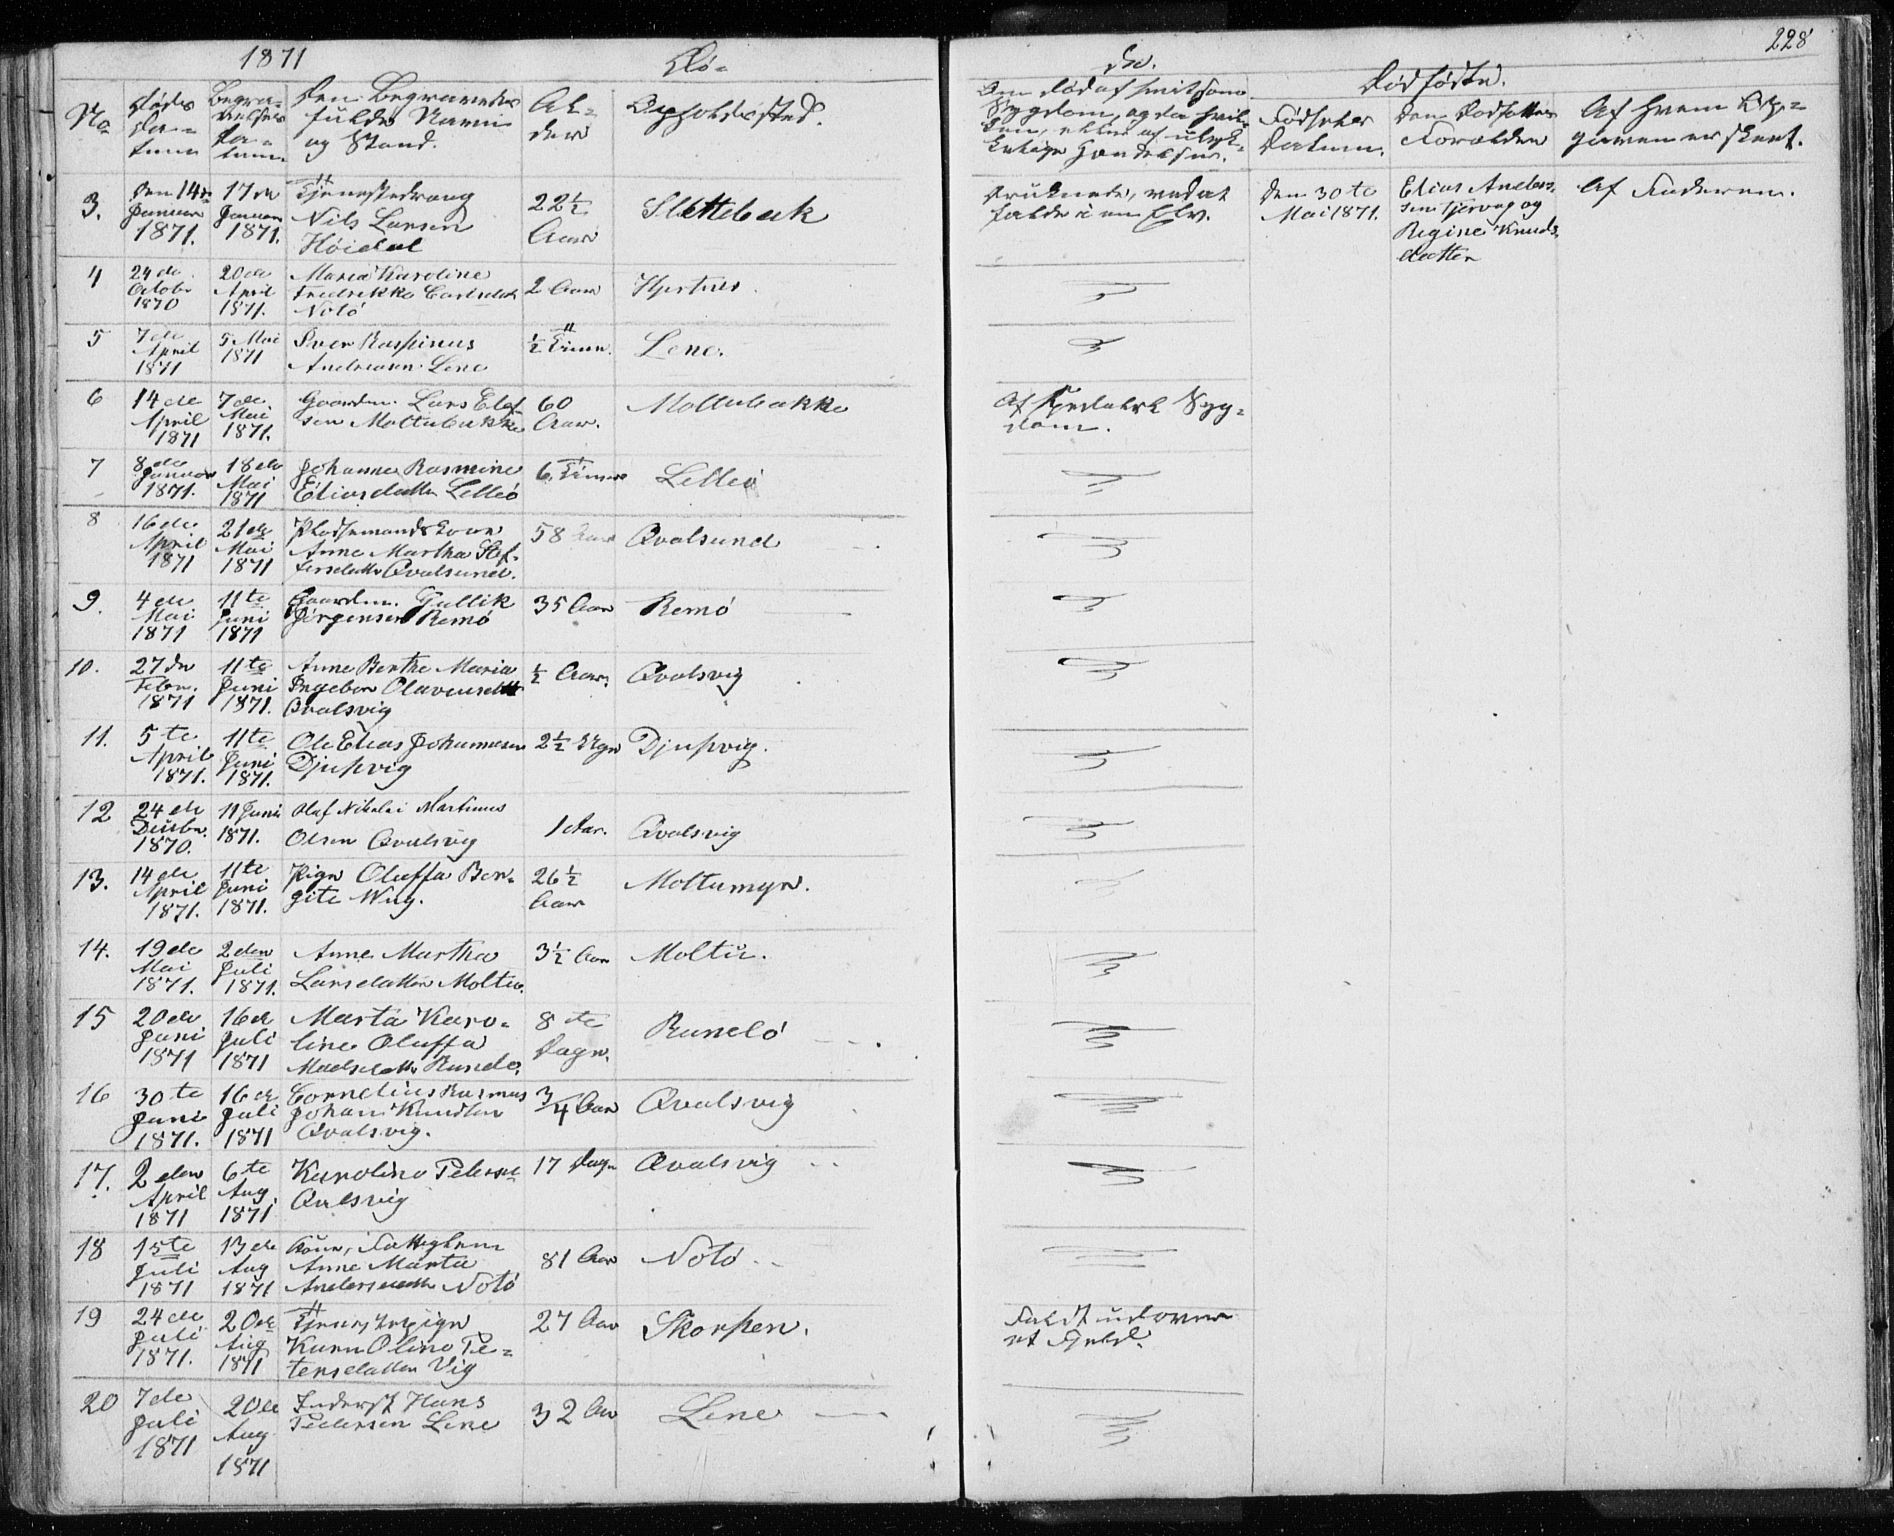 1871
Dø-
de.
228
No
Døds
Da-
tum
Begra-
velses
Da-
tum
Den Begravedes
fulde Navn
og Stand.
Al-
der
Opholdssted.
Om Død af smitsom
Sygdom, og da hvil-
ken, eller af ulyk-
kelige Hændelser.
Dødfødte.
Fødsels
Datum.
Den Dødfødtes
Forældre
Af hvem Op-
gaven er skeet.
3.
Den 14de
Januar
1871.
17de
Januar
1871.
Tjenestedreng
Nils Larsen
Høidal
22½
Aar
Slettebak
Druknede, ved at
falde i en Elv.
Den 30te
Mai 1871.
Elias Anders-
sen Tjervog og
Regine Knuds-
datter
Af Faderen.
4
24de
Octobr
1870
20de
April
1871.
Maria Karoline
Fredrikke Carlsdatt
Notö
2 Aar
Hjertnes
5
7de
April
1871
5 Mai
1871
Iver Raspinus
Andreasen Lene
½ Time.
Lene.
6
14de
April
1871
7de
Mai
1871.
Gaardm. Lars Elef-
sen Moltubakke
60
Aar.
Moltubakke
Af Spedalsk Syg-
dom.
7
8de
Januar
1871.
18de
Mai
1871
Johanna Rasmine
Eliasdatter Lelleö
6 Timer
Lelleö
8
16de
April
1871
21de
Mai
1871
Plodsemandskone
Anne Martha Stef-
fensdatter Qvalsund.
58 Aar
Qvalsund
9.
4de
Mai
1871
11te
Juni
1871
Gaardm. Gullik
Jörgensen Remö
35 Aar
Remö
10.
27de
Febr.
1871
11te
Juni
1871.
Anne Berthe Maria
Ingebor Olavensdatt
Qvalsvig
½ Aar.
Qvalsvig
11.
5te
April
1871.
11te
Juni
1871.
Ole Elias Johannesen
Djupvig
2½ Uger
Djupvig.
12
24de
Decbr.
1870.
11 Juni
1871.
Olaf Nikolai Martinus
Olsen Qvalsvig
1 Aar.
Qvalsvig
13.
14de
April
1871.
11te
Juni
1871.
Pige Oluffa Ber-
gite Wig.
26½
Aar
Moltumyr.
14.
19de
Mai
1871.
2den
Juli
1871.
Anne Martha
Larsdatter Moltu.
3½ Aar
Moltu.
15
20de
Juni
1871
16de
Juli
1871
Marta Karo-
line Oluffa
Madsdatter Runde.
8te
Dage.
Rundö
16
30te
Juni
1871.
16de
Juli
1871
Cornelius Rasmus
Johan Knudsen
Qvalsvig.
3/4 Aar
Qvalsvig
17.
2den
April
1871
6te
Aug.
1871
Karoline Petersd
Qvalsvig
17 Dage
Qvalsvig
18
15te
Juli
1871
13de
Aug
1871
Kone, Fattiglem
Anne Marta
Andersdatter Notö
81 Aar
Notö
19
24de
Juli
1871.
20de
Aug
1871
Tjenestepige
Karn Oline Pe-
tersdatter Vig
27 Aar
Skorpen.
Faldt udover
et Fjeld.
20
7de
Juli
1871
20de
Aug
1871
Inderst Hans
Pedersen Lene
32 Aar
Lene